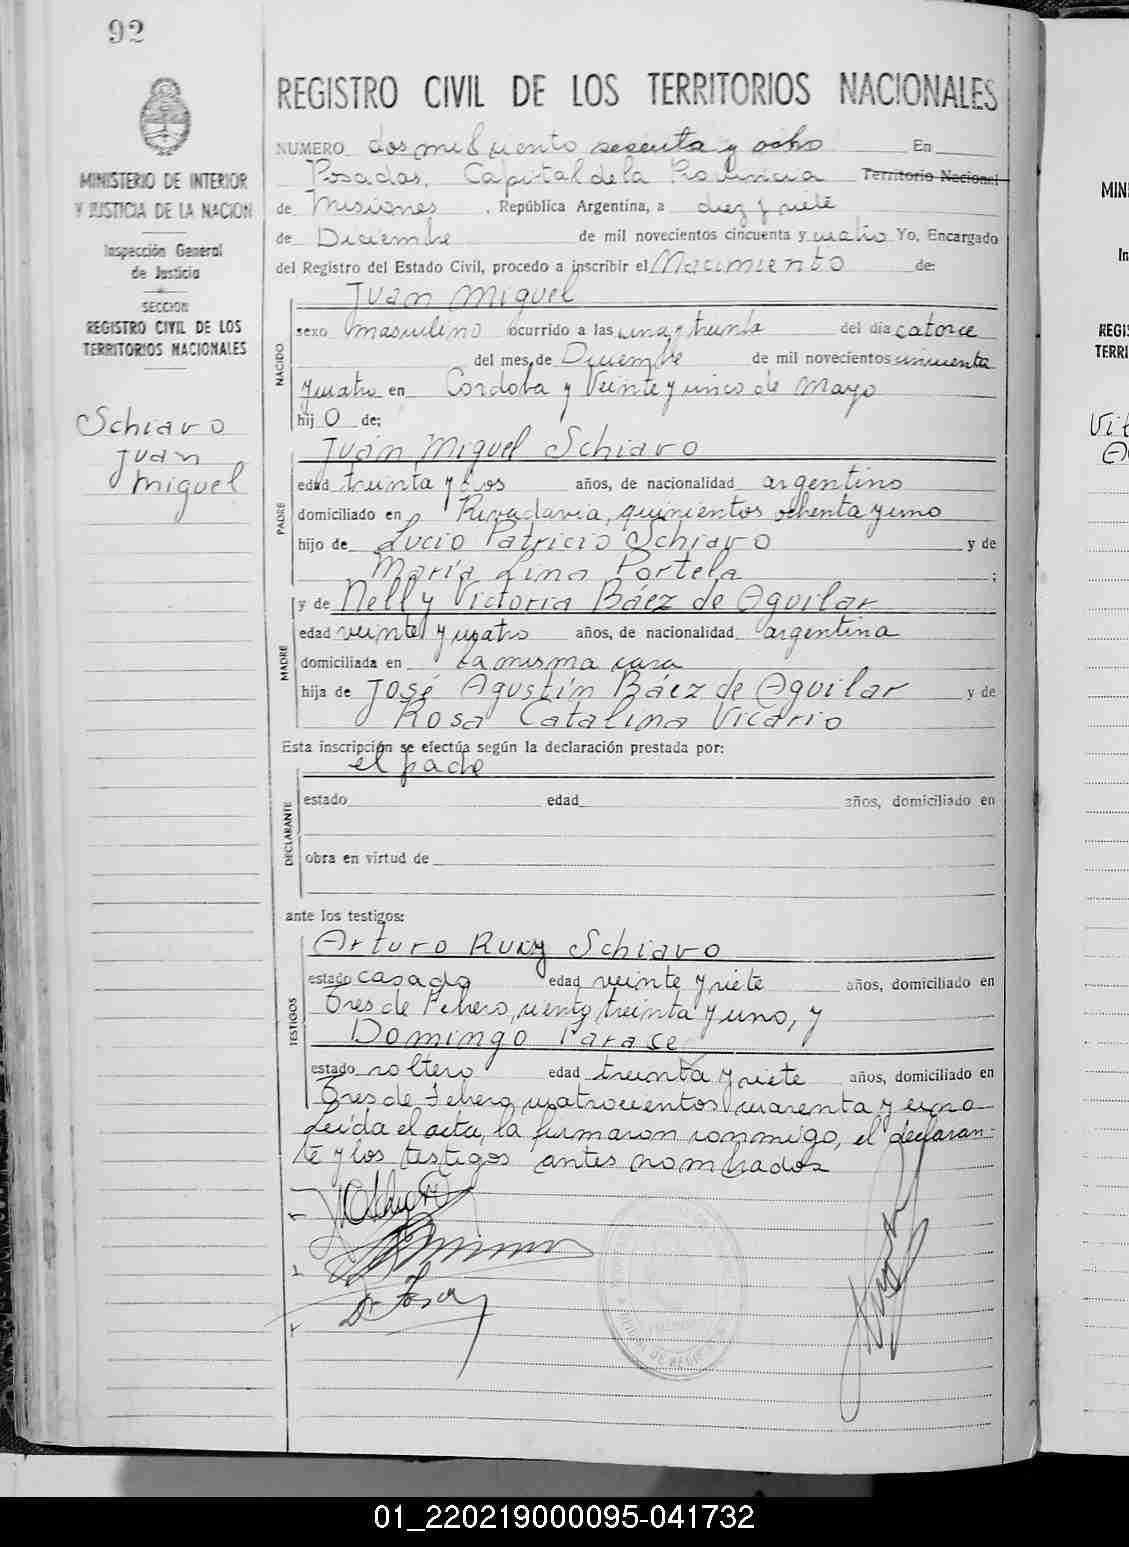 92
MINISTERIO DE INTERIOR
Y JUSTICIA DE LA NACION
Inspección General
de Justicia
SECCION
REGISTRO CIVIL DE LOS
TERRITORIOS NACIONALES
Schiavo
Juan
Miguel
REGISTRO CIVIL DE LOS TERRITORIOS NACIONALES
NUMERO dos mil ciento sesenta y ocho En
Posadas, Capital de la Provincia Territorio Nacional
de Misiones, República Argentina, a diez y siete
de Diciembre de mil novecientos cincuenta y cuatro Yo, Encargado
del Registro del Estado Civil, procedo a inscribir el Nacimiento de:
NACIDO
Juan Miguel
sexo masculino ocurrido a las una y treinta del día catorce
del mes de Diciembre de mil novecientos cincuenta
y cuatro en Cordoba y Veinte y cinco de Mayo
hijo de:
PADRE
Juan Miguel Schiavo
edad treinta y dos años, de nacionalidad argentino
domiciliado en Rivadavia, quinientos ochenta y uno
hijo de Lucio Patricio Schiavo y de
María Lina Portela ;
MADRE
y de Nelly Victoria Báez de Aguilar
edad veinte y cuatro años, de nacionalidad argentina
domiciliada en la misma casa
hija de José Agustín Báez de Aguilar y de
Rosa Catalina Vicario
Esta inscripción se efectúa según la declaración prestada por:
el padre
DECLARANTE
estado edad años, domiciliado en
obra en virtud de
ante los testigos:
TESTIGOS
Arturo Schiavo
estado casado edad veinte y siete años, domiciliado en
Tres de Febrero, ciento treinta y uno, y
Domingo
estado soltero edad treinta y siete años, domiciliado en
Tres de Febrero cuatrocientos cuarenta y uno
Leída el acta, la firmaron conmigo, el declaran-
te y los testigos antes nombrados
MINI
In
REGIS
TERRI
Vil
01_220219000095-041732